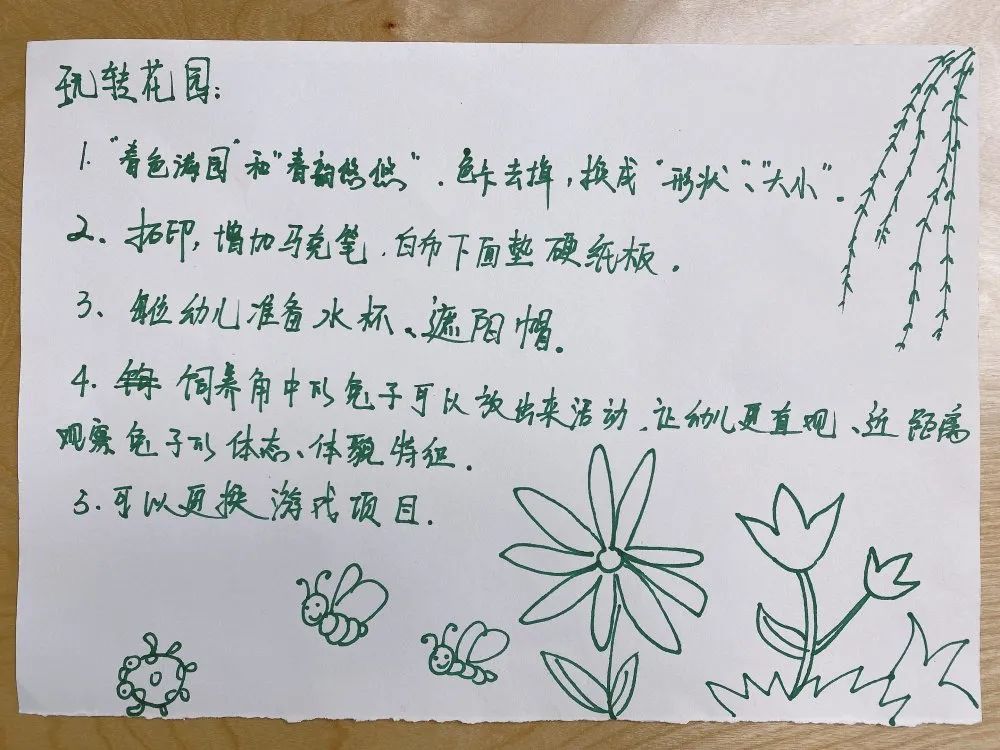 玩转花园:
1. "春色满园"和"春韵悠悠". 色卡去掉,换成"形状"、"大小".
2、拓印,增加马克笔.白布下面垫硬纸板.
3、每位幼儿准备水杯、遮阳帽.
4. 饲养角中的兔子可以放出来活动.让幼儿更直观、近距离
观察兔子的体态、体貌特征.
5.可以更换游戏项目.